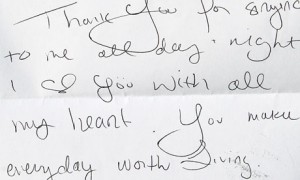 Thank You for singing
to me all day · night
I ♡ you with all
my heart. You make
everyday worth living.